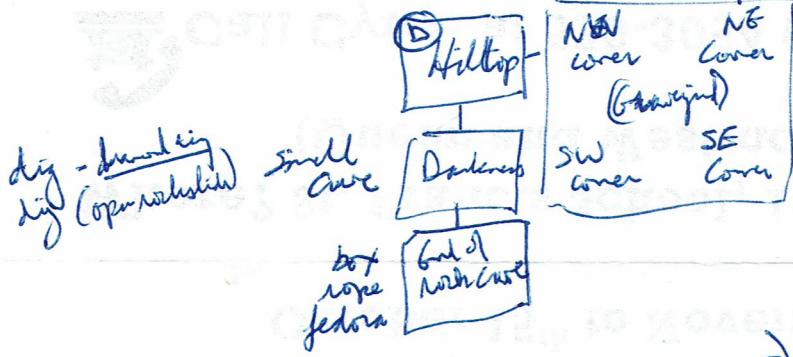 D
Hilltop
NW corner
NE corner
(Graveyard)
SW corner
SE corner
dig - diamond ring
dig (open rockslide)
Small cave
Darkness
box
rope
fedora
End of
rock cave